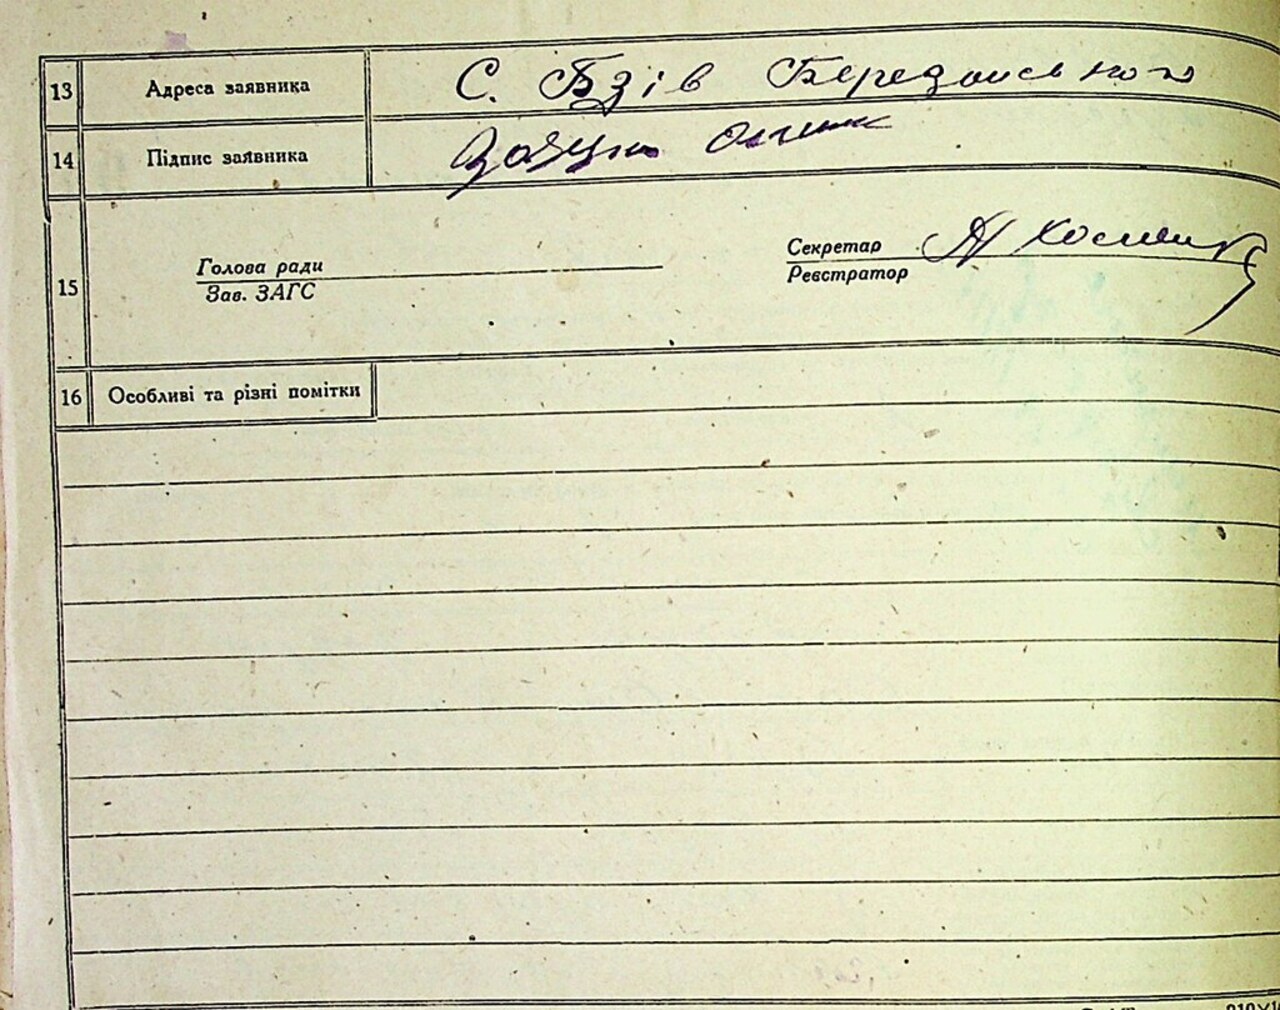 13 Адреса заявника С. Бзів Березансьного
14 Підпис заявника
15 Голова ради Секретар
Зав. ЗАГС Реєстратор
16 Особливі та різні помітки